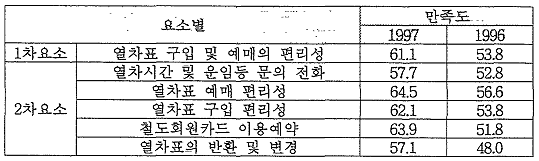 요소별 만족도
1997 1996
1차요소 열차표 구입 및 예매의 편리성 61.1 53.8
2차요소 열차시간 및 운임등 문의 전화 57.7 52.8
열차표 예매 편리성 64.5 56.6
열차표 구입 편리성 62.1 53.8
철도회원카드 이용예약 63.9 51.8
열차표의 반환 및 변경 57.1 48.0